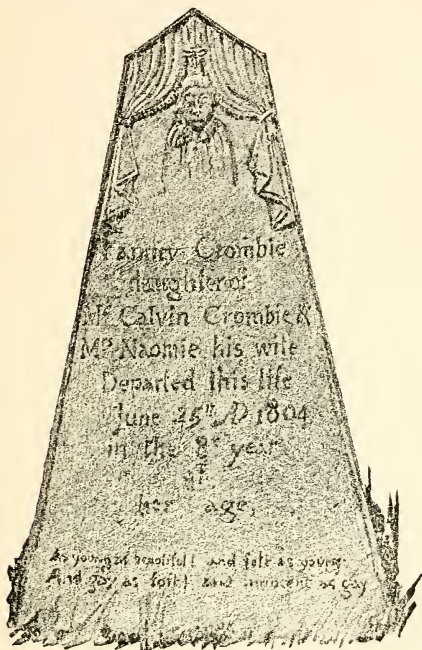 Fanney Crombie
daughter of
Mr. Calvin Crombie &
Mrs. Naomie his wife
Departed this life
June 25th AD 1804
in the 8th year
of
her age.
As young as beautifull and soft as young
And gay as soft and innocent as gay